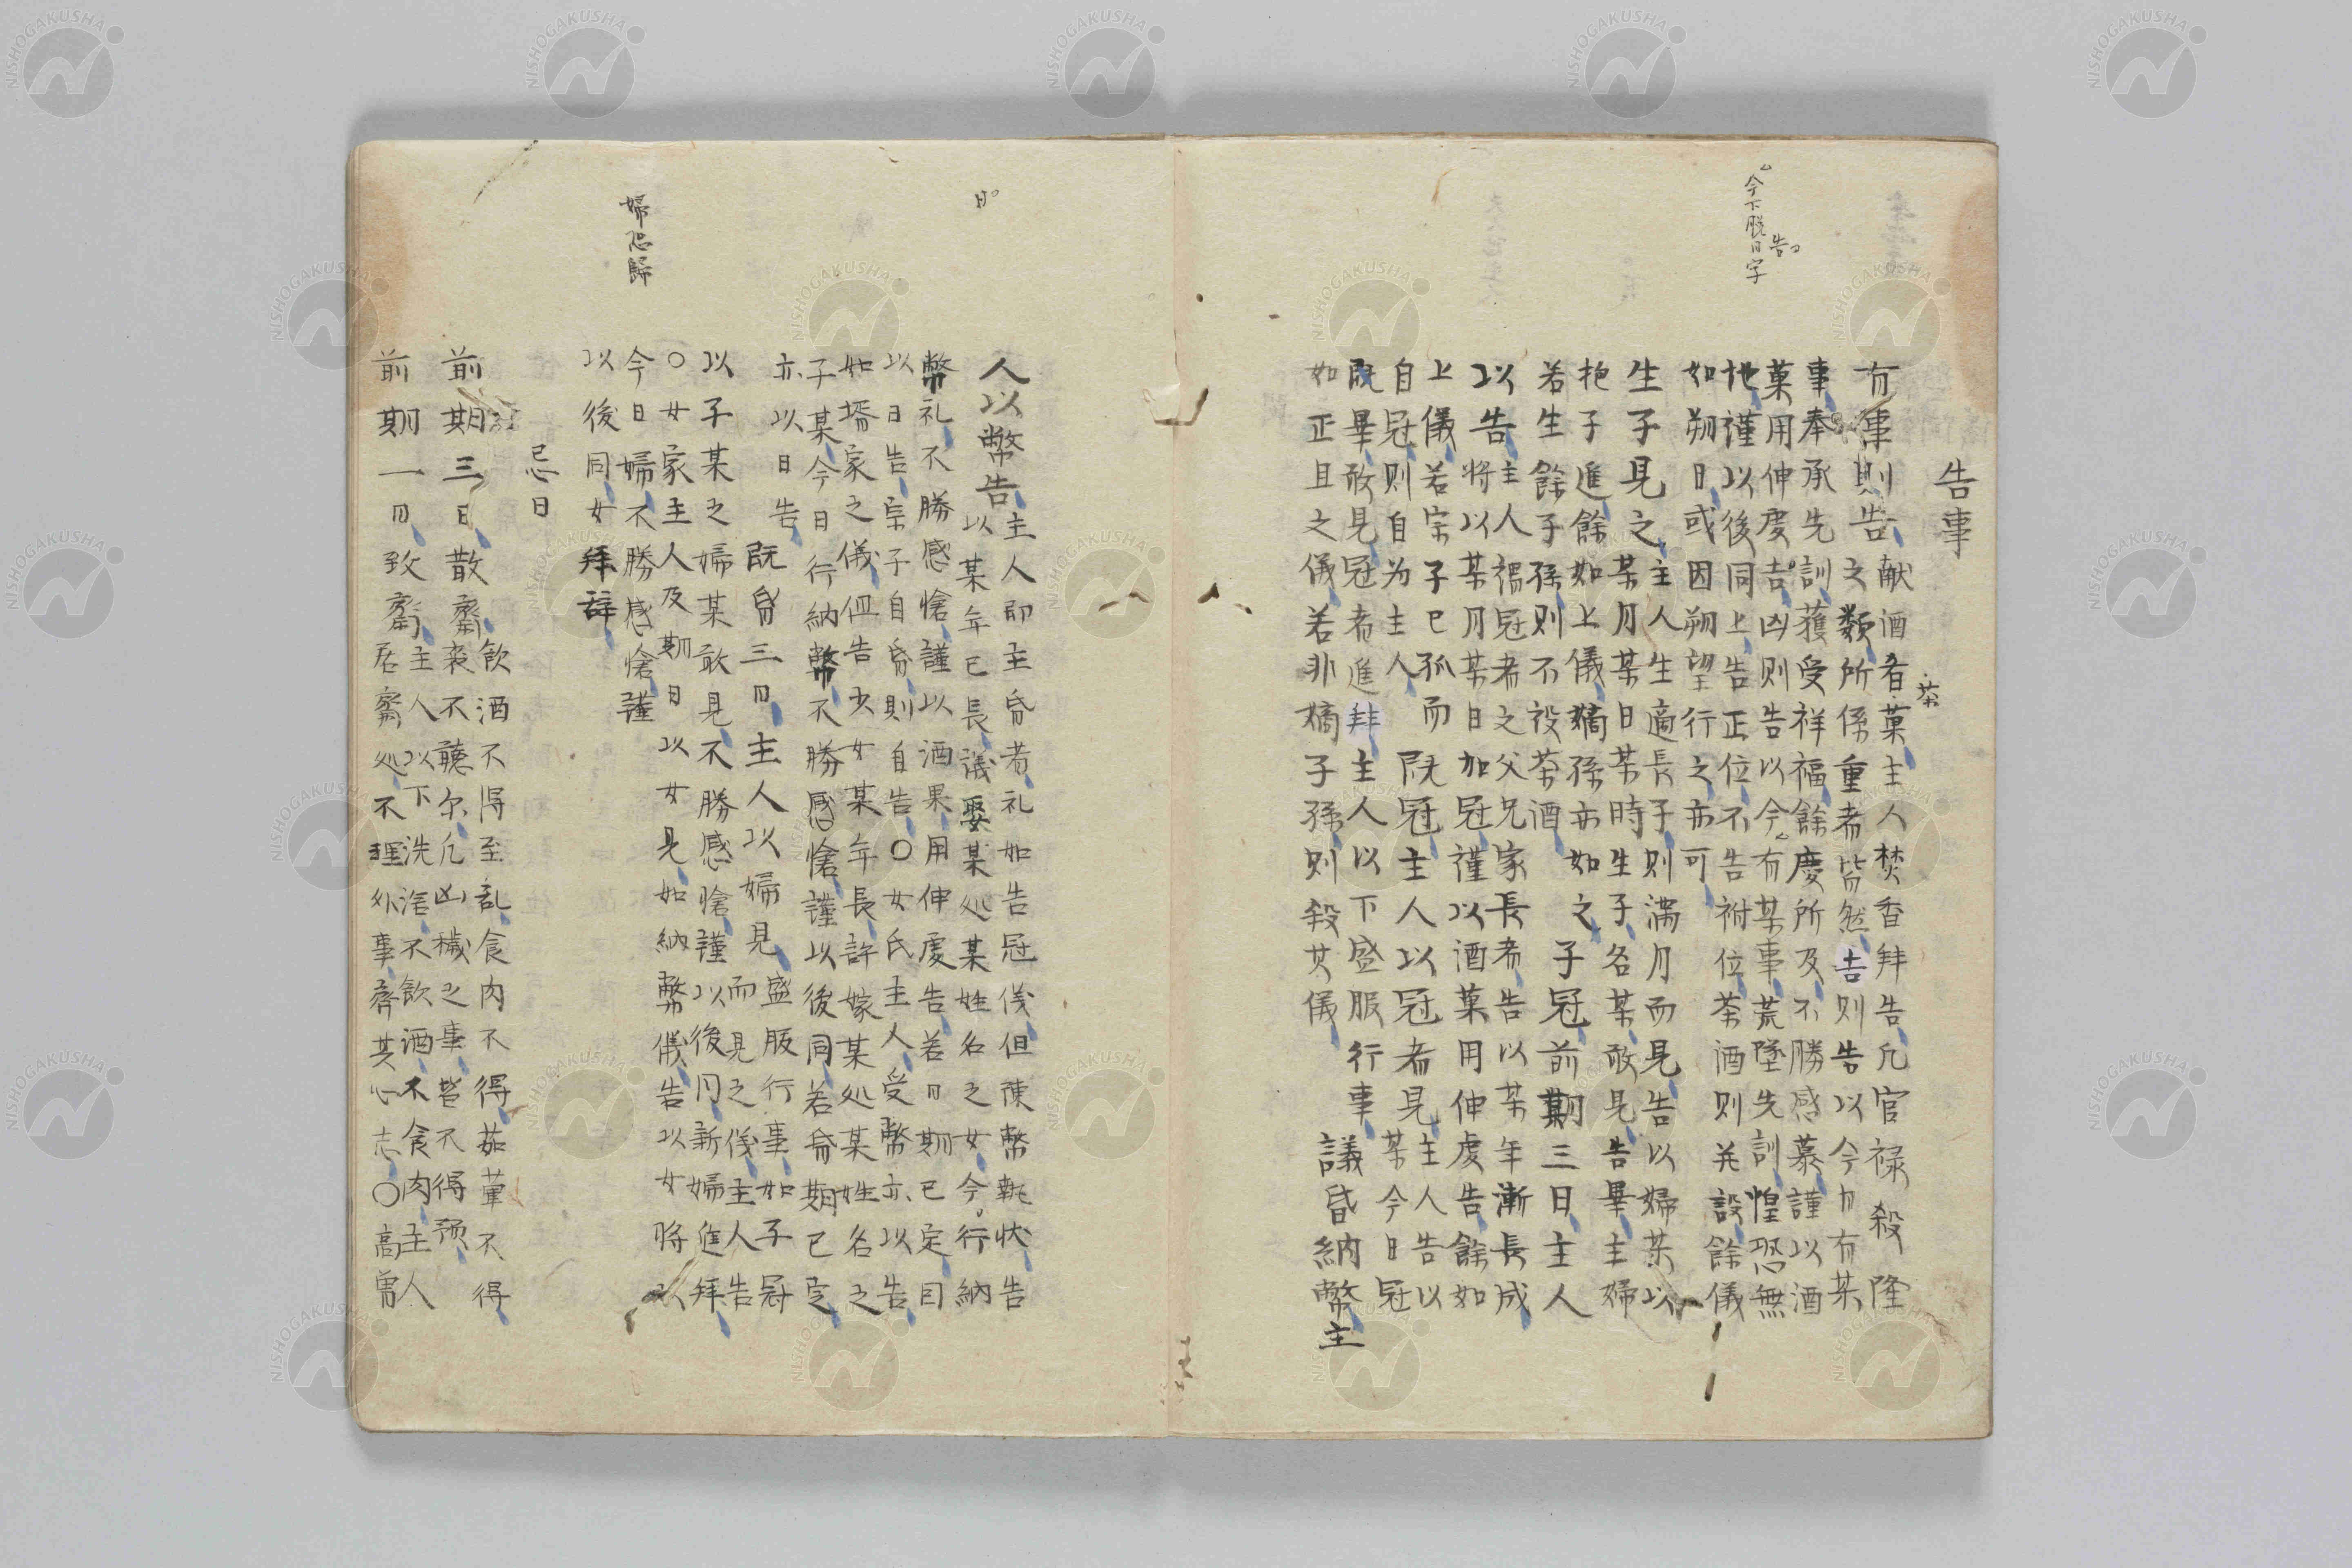 告事
有事則告
献酒肴菓主人焚香拜告凡官禄殺隆
茶
之類所係重者皆然告則告以今日有某
事奉承先訓獲受祥福餘慶所及不勝感慕謹以酒
菓用伸虔告凶則告以今有某事荒墜先訓惶恐無
今下脱日字
告
地謹以後同上告正位不告祔位茶酒則并設餘儀
如朔日或因朔望行之亦可
生子見之
主人生適長子則満月而見告以婦某以
某月某日某時生子名某敢見告畢主婦
抱子進餘如上儀嫡孫亦如之
若生餘子孫則不設茶酒
子冠前期三日主人
以告
主人禰冠者之父兄家長者告以某年漸長成
将以某月某日加冠謹以酒菓用伸虔告餘如
上儀若宗子已孤而
自冠則自为主人
既冠主人以冠者見
主人告以
某今日冠
既畢敢見冠者進拜主人以下盛服行事
如正旦之儀若非嫡子孫則殺其儀
議昏納幣主
人以幣告
主人即主昏者礼如告冠儀但陳幣執状告
以某年已長議娶某処某姓名之女今行納
日
幣礼不勝感愴謹以酒果用伸虔告若日期已定同
以日告宗子自昏則自告〇女氏主人受幣亦以告
如壻家之儀但告少女某年長許嫁某処某姓名之
子某今日行納幣不勝感愴謹以後同若昏期已定
亦以日告
既昏三日主人以婦見
盛服行事如子冠
而見之儀主人告
以子某之婦某敢見不勝感愴謹以後同新婦進拜
〇女家主人及期日以女見如納幣儀告以女将以
今日婦不勝感愴謹
婦恐歸
以後同女拜辞
忌日
前期三日散齋
飲酒不得至乱食肉不得茹葷不得
喪不聴尓凡凶穢之事皆不得預
前期一日致齋
主人以下洗浴不飲酒不食肉主人
居齋処不理外事齊其心志〇高曾